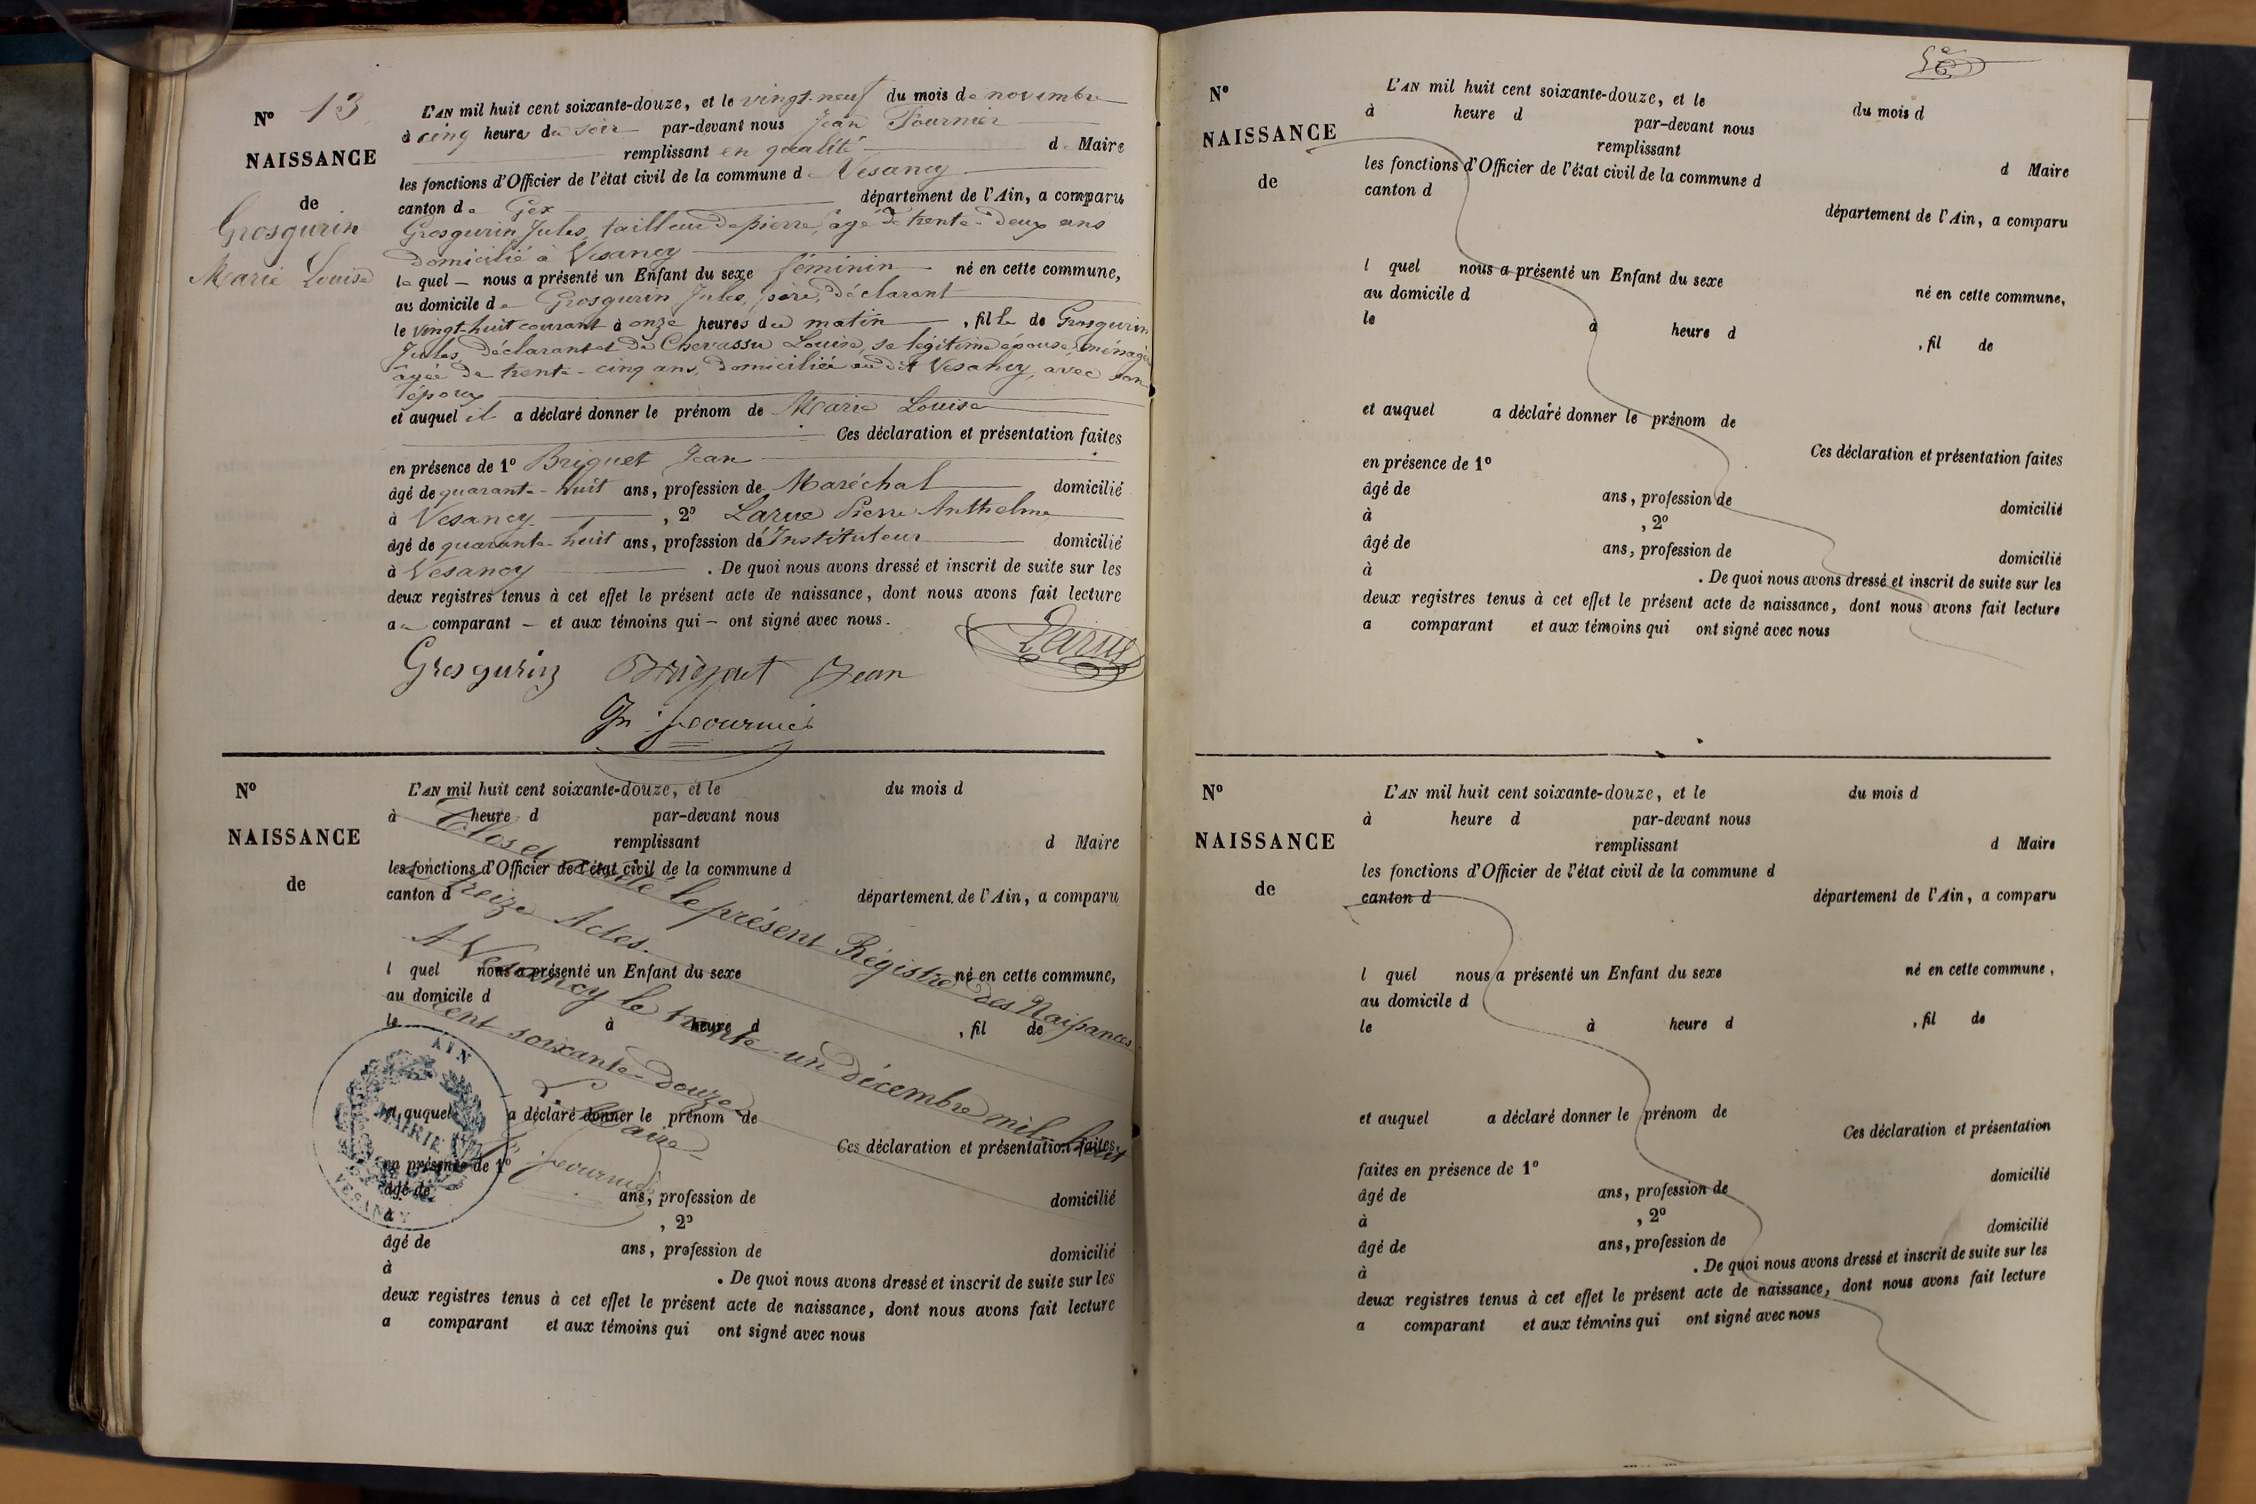 N° 13
NAISSANCE
de
Grosgurin
Marie Louise
L'AN mil huit cent soixante-douze, et le vingt-neuf du mois de novembre
à cinq heures du soir par-devant nous Jean Fournier
remplissant en qualité de Maire
les fonctions d'Officier de l'état civil de la commune de Vesancy
canton de Gex département de l'Ain, a comparu
Grosgurin Jules, tailleur de pierre, âgé de trente-deux ans
domicilié à Vesancy
lequel nous a présenté un Enfant du sexe féminin né en cette commune,
au domicile de Grosgurin Jules, père, déclarant
le vingt-huit courant à onze heures du matin, fille de Grosgurin
Jules, déclarant et de Chevassu Louise, sa légitime épouse, ménagère
âgée de trente-cinq ans, domiciliée au dit Vesancy, avec son
époux
et auquel il a déclaré donner le prénom de Marie Louise
Ces déclaration et présentation faites
en présence de 1° Briquet Jean
âgé de quarante-huit ans, profession de Maréchal domicilié
à Vesancy, 2° Larue Pierre Anthelme
âgé de quarante-huit ans, profession de Instituteur domicilié
à Vesancy. De quoi nous avons dressé et inscrit de suite sur les
deux registres tenus à cet effet le présent acte de naissance, dont nous avons fait lecture
au comparant et aux témoins qui ont signé avec nous.
Larue
Grosgurin Briquet Jean
Jn Fournier
N°
NAISSANCE
de
L'AN mil huit cent soixante-douze, et le du mois d
à heure d par-devant nous
remplissant d Maire
les fonctions d'Officier de l'état civil de la commune d
canton d département de l'Ain, a comparu
l quel nous a présenté un Enfant du sexe né en cette commune,
au domicile d
le à heure d , fil de
et auquel a déclaré donner le prénom de
Ces déclaration et présentation faites
en présence de 1°
âgé de ans, profession de domicilié
à , 2°
âgé de ans, profession de domicilié
à . De quoi nous avons dressé et inscrit de suite sur les
deux registres tenus à cet effet le présent acte de naissance, dont nous avons fait lecture
a comparant et aux témoins qui ont signé avec nous
Clos et arrêté le présent Régistre des Naissances
à treize Actes.
A Vesancy le trente-un décembre mil huit
cent soixante-douze
Le Maire
Jn Fournier
AIN
MAIRIE
VESANCY
N°
NAISSANCE
de
L'AN mil huit cent soixante-douze, et le du mois d
à heure d par-devant nous
remplissant d Maire
les fonctions d'Officier de l'état civil de la commune d
canton d département de l'Ain, a comparu
l quel nous a présenté un Enfant du sexe né en cette commune,
au domicile d
le à heure d , fil de
et auquel a déclaré donner le prénom de
Ces déclaration et présentation faites
en présence de 1°
âgé de ans, profession de domicilié
à , 2°
âgé de ans, profession de domicilié
à . De quoi nous avons dressé et inscrit de suite sur les
deux registres tenus à cet effet le présent acte de naissance, dont nous avons fait lecture
a comparant et aux témoins qui ont signé avec nous
N°
NAISSANCE
de
L'AN mil huit cent soixante-douze, et le du mois d
à heure d par-devant nous
remplissant d Maire
les fonctions d'Officier de l'état civil de la commune d
canton d département de l'Ain, a comparu
l quel nous a présenté un Enfant du sexe né en cette commune,
au domicile d
le à heure d , fil de
et auquel a déclaré donner le prénom de
Ces déclaration et présentation
faites en présence de 1° domicilié
âgé de ans, profession de
à , 2° domicilié
âgé de ans, profession de
à . De quoi nous avons dressé et inscrit de suite sur les
deux registres tenus à cet effet le présent acte de naissance, dont nous avons fait lecture
a comparant et aux témoins qui ont signé avec nous